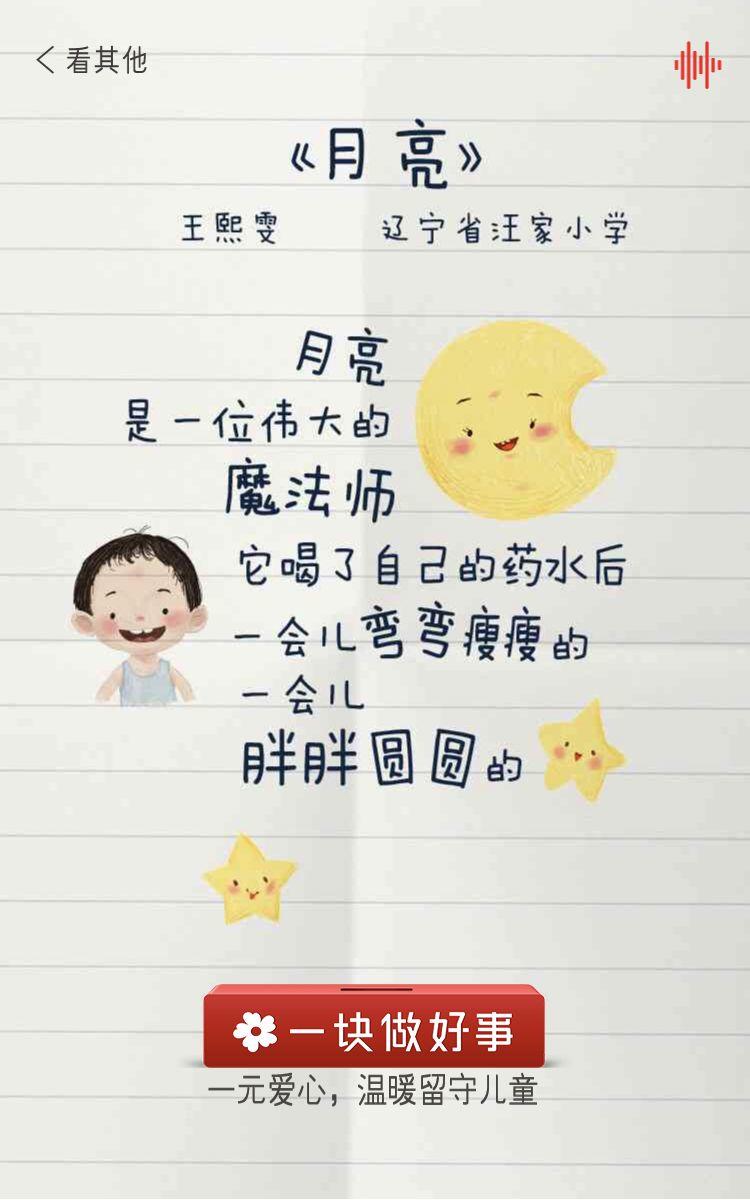 看其他
《月亮》
王熙雯 辽宁省汪家小学
月亮
是一位伟大的
魔法师
它喝了自己的药水后
一会儿弯弯瘦瘦的
一会儿
胖胖圆圆的
一块做好事
一元爱心，温暖留守儿童